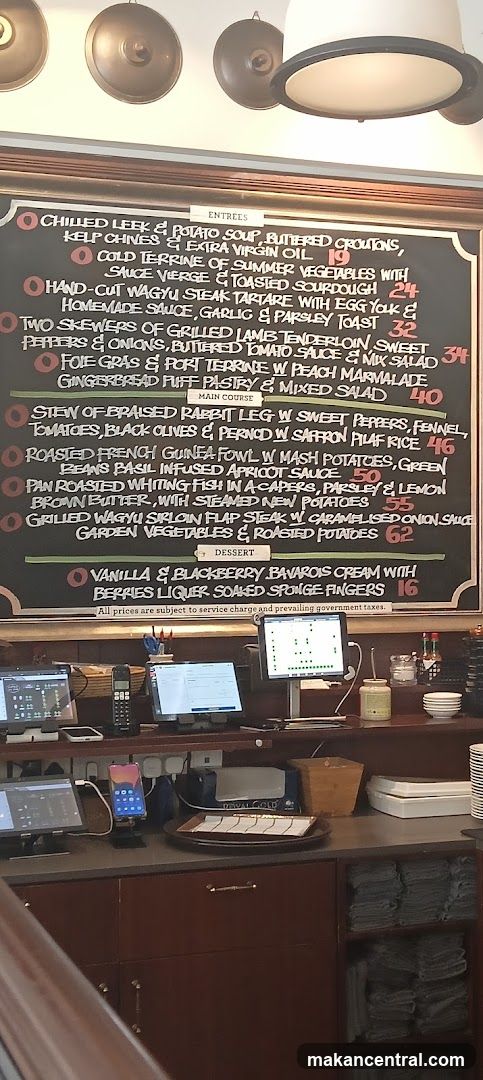 ENTREES
CHILLED LEEK & POTATO SOUP, BUTTERED CROUTONS,
KELP CHIVES & EXTRA VIRGIN OIL 19
COLD TERRINE OF SUMMER VEGETABLES WITH
SAUCE VIERGE & TOASTED SOURDOUGH 24
HAND-CUT WAGYU STEAK TARTARE WITH EGG YOLK &
HOMEMADE SAUCE, GARLIC & PARSLEY TOAST 32
TWO SKEWERS OF GRILLED LAMB TENDERLOIN, SWEET
PEPPERS & ONIONS, BUTTERED TOMATO SAUCE & MIX SALAD 34
FOIE GRAS & PORT TERRINE W PEACH MARMALADE
GINGERBREAD PUFF PASTRY & MIXED SALAD 40
MAIN COURSE
STEW OF BRAISED RABBIT LEG W SWEET PEPPERS, FENNEL,
TOMATOES, BLACK OLIVES & PERNOD W SAFFRON PILAF RICE 46
ROASTED FRENCH GUINEA FOWL W MASH POTATOES, GREEN
BEANS BASIL INFUSED APRICOT SAUCE 50
PAN ROASTED WHITING FISH IN A CAPERS, PARSLEY & LEMON
BROWN BUTTER, WITH STEAMED NEW POTATOES 55
GRILLED WAGYU SIRLOIN FLAP STEAK W CARAMELISED ONION SAUCE
GARDEN VEGETABLES & ROASTED POTATOES 62
DESSERT
VANILLA & BLACKBERRY BAVAROIS CREAM WITH
BERRIES LIQUER SOAKED SPONGE FINGERS 16
All prices are subject to service charge and prevailing government taxes.
makancentral.com